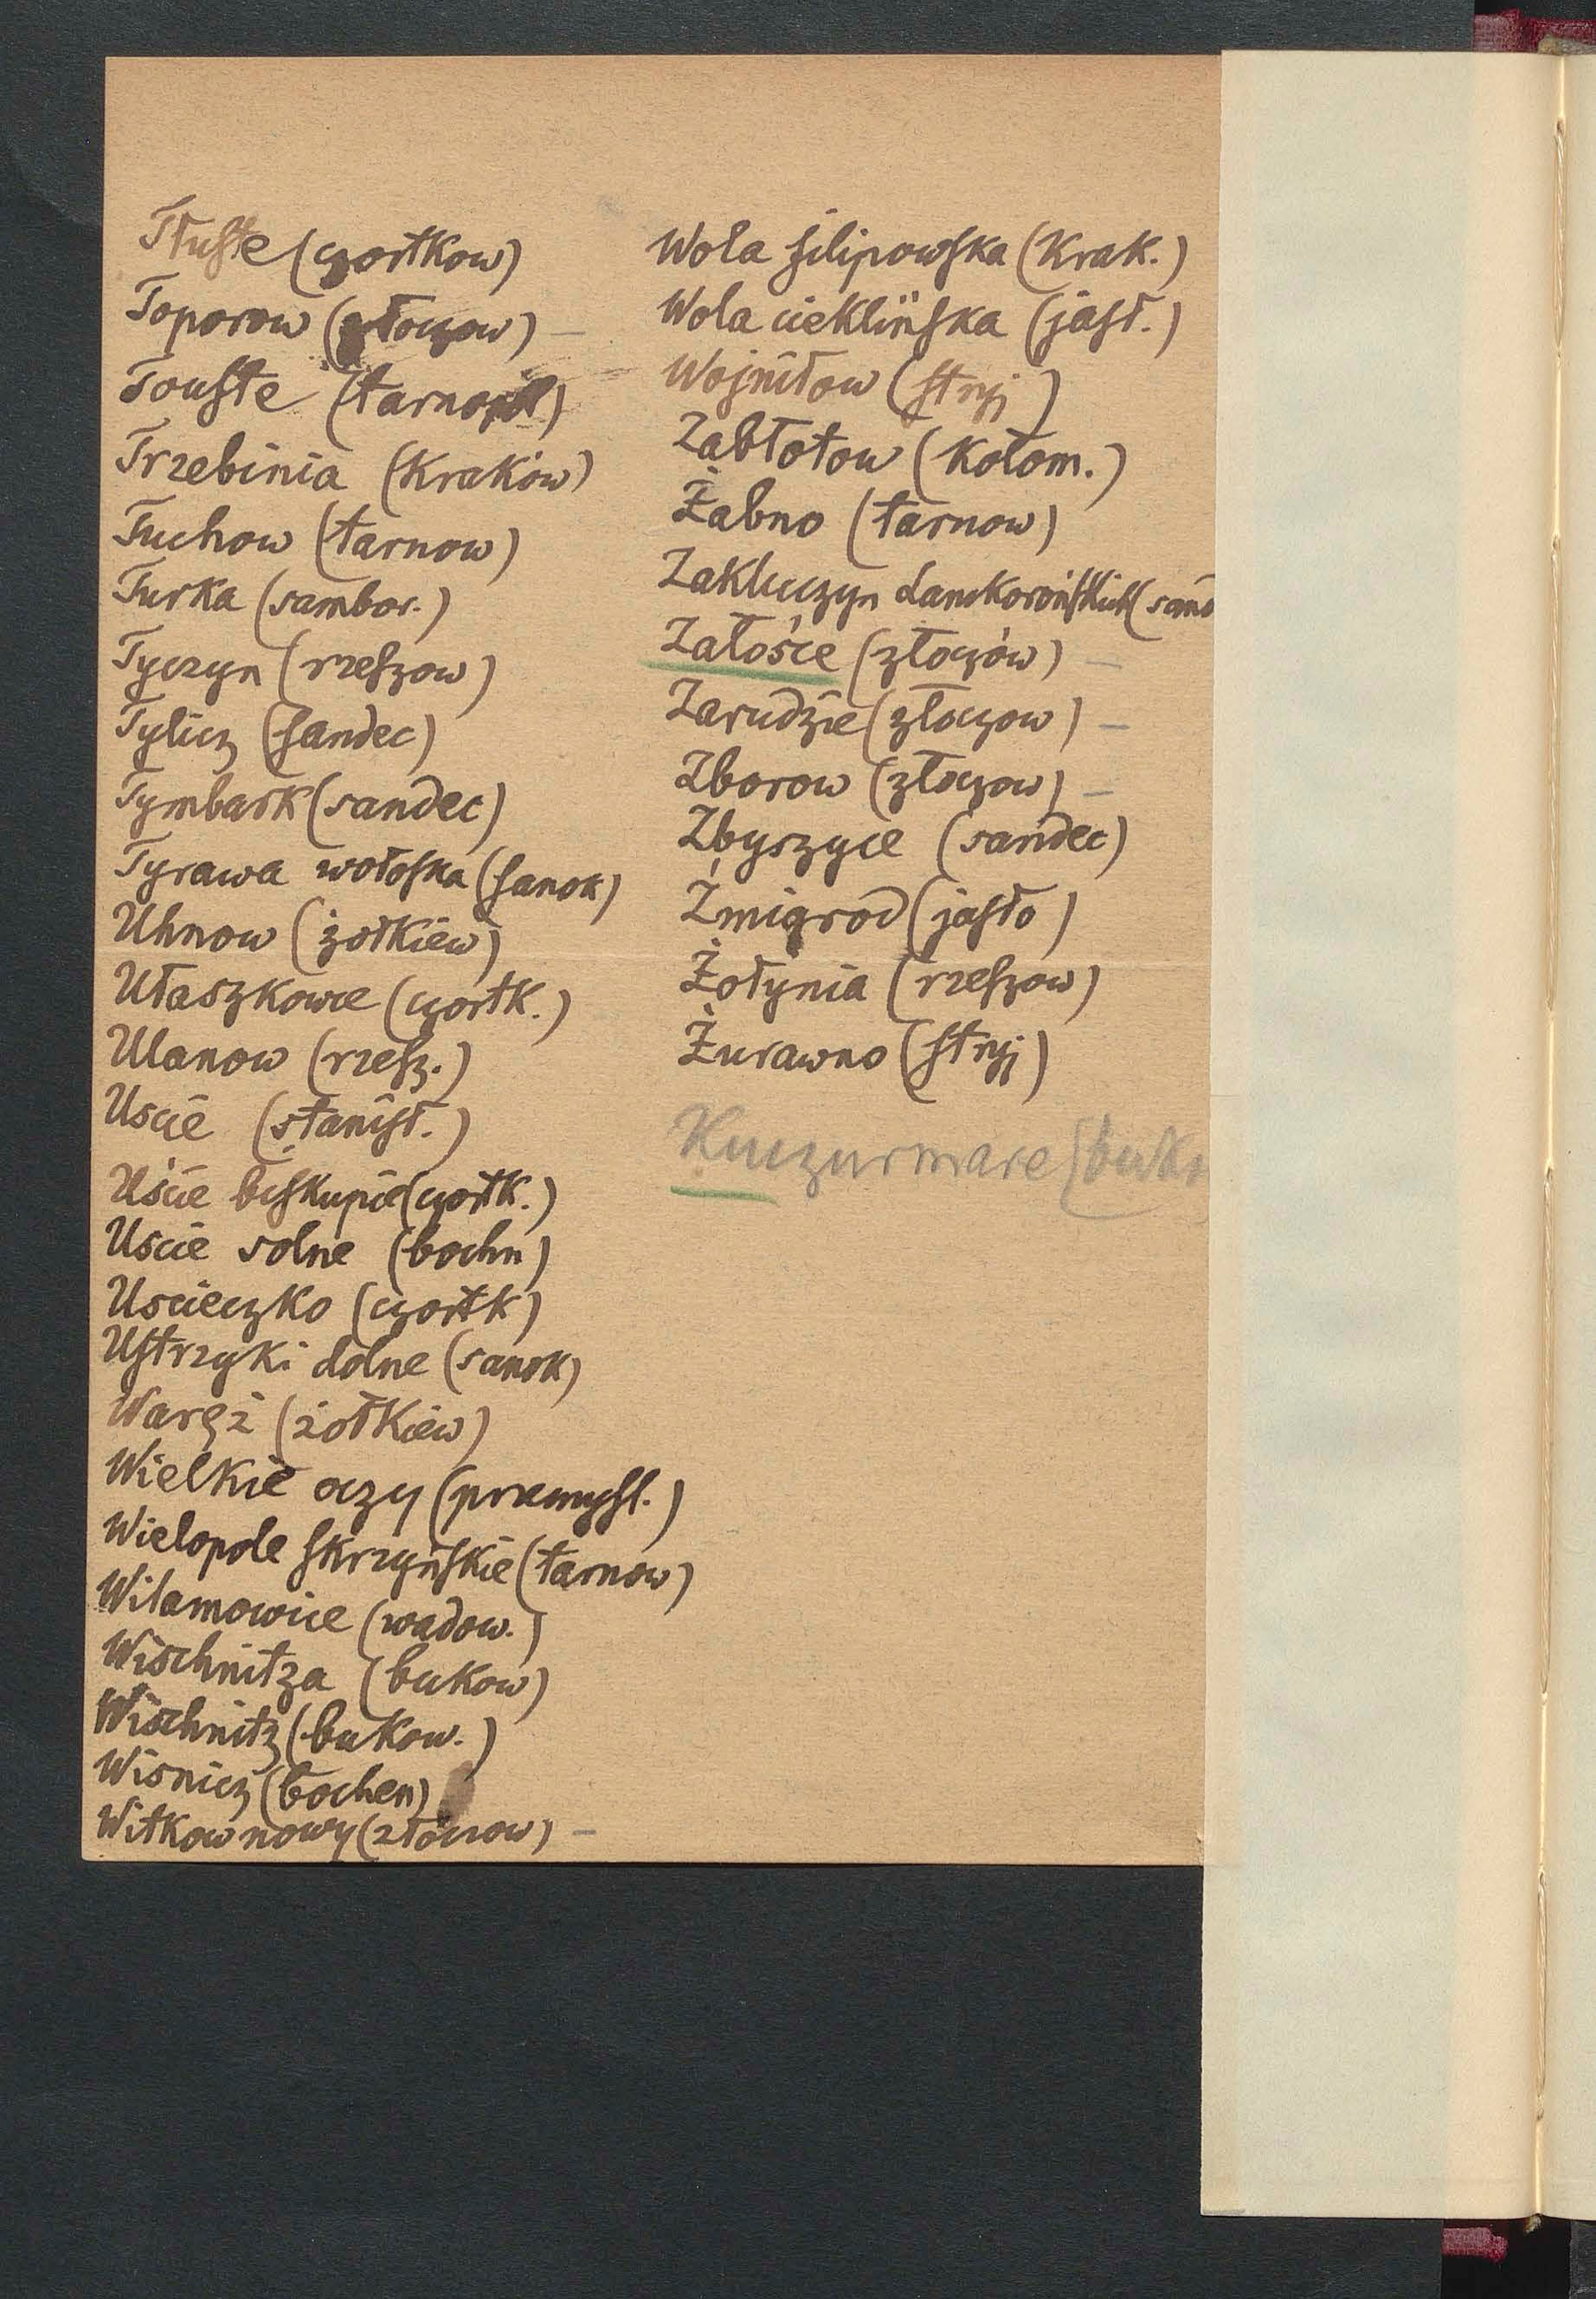 Tłuste (czortkow)
Toporow (złoczow) –
Touste (tarnopol)
Trzebinia (Kraków)
Tuchow (tarnow)
Turka (sambor.)
Tyczyn (rzeszow)
Tylicz (sandec)
Tymbark (sandec)
Tyrawa wołoska (sanok)
Uhnow (żołkiew)
Ułaszkowce (czortk.)
Ulanow (rzesz.)
Uscie (stanisł.)
Uście biskupie (czortk.)
Uscie solne (bochn)
Uscieczko (czortk)
Ustrzyki dolne (sanok)
Waręż (żołkiew)
Wielkie oczy (przemysl.)
Wielopole skrzyńskie (tarnow)
Wilamowice (wadow.)
Wischnitza (bukow)
Wischnitz (bukow.)
Wisnicz (bochen)
Witkow nowy (złoczow) –
Wola filipowska (Krak.)
Wola cieklińska (jasł.)
Wojniłow (stryj)
Zabłotow (kołom.)
Żabno (tarnow)
Zakluczyn Lanckorońskich (sand
Załośce (złoczów) –
Zarudzie (złoczow) –
Zborow (złoczow) –
Zbyszyce (sandec)
Żmigrod (jasło)
Żołynia (rzeszow)
Żurawno (stryj)
Kuczurmare (buko